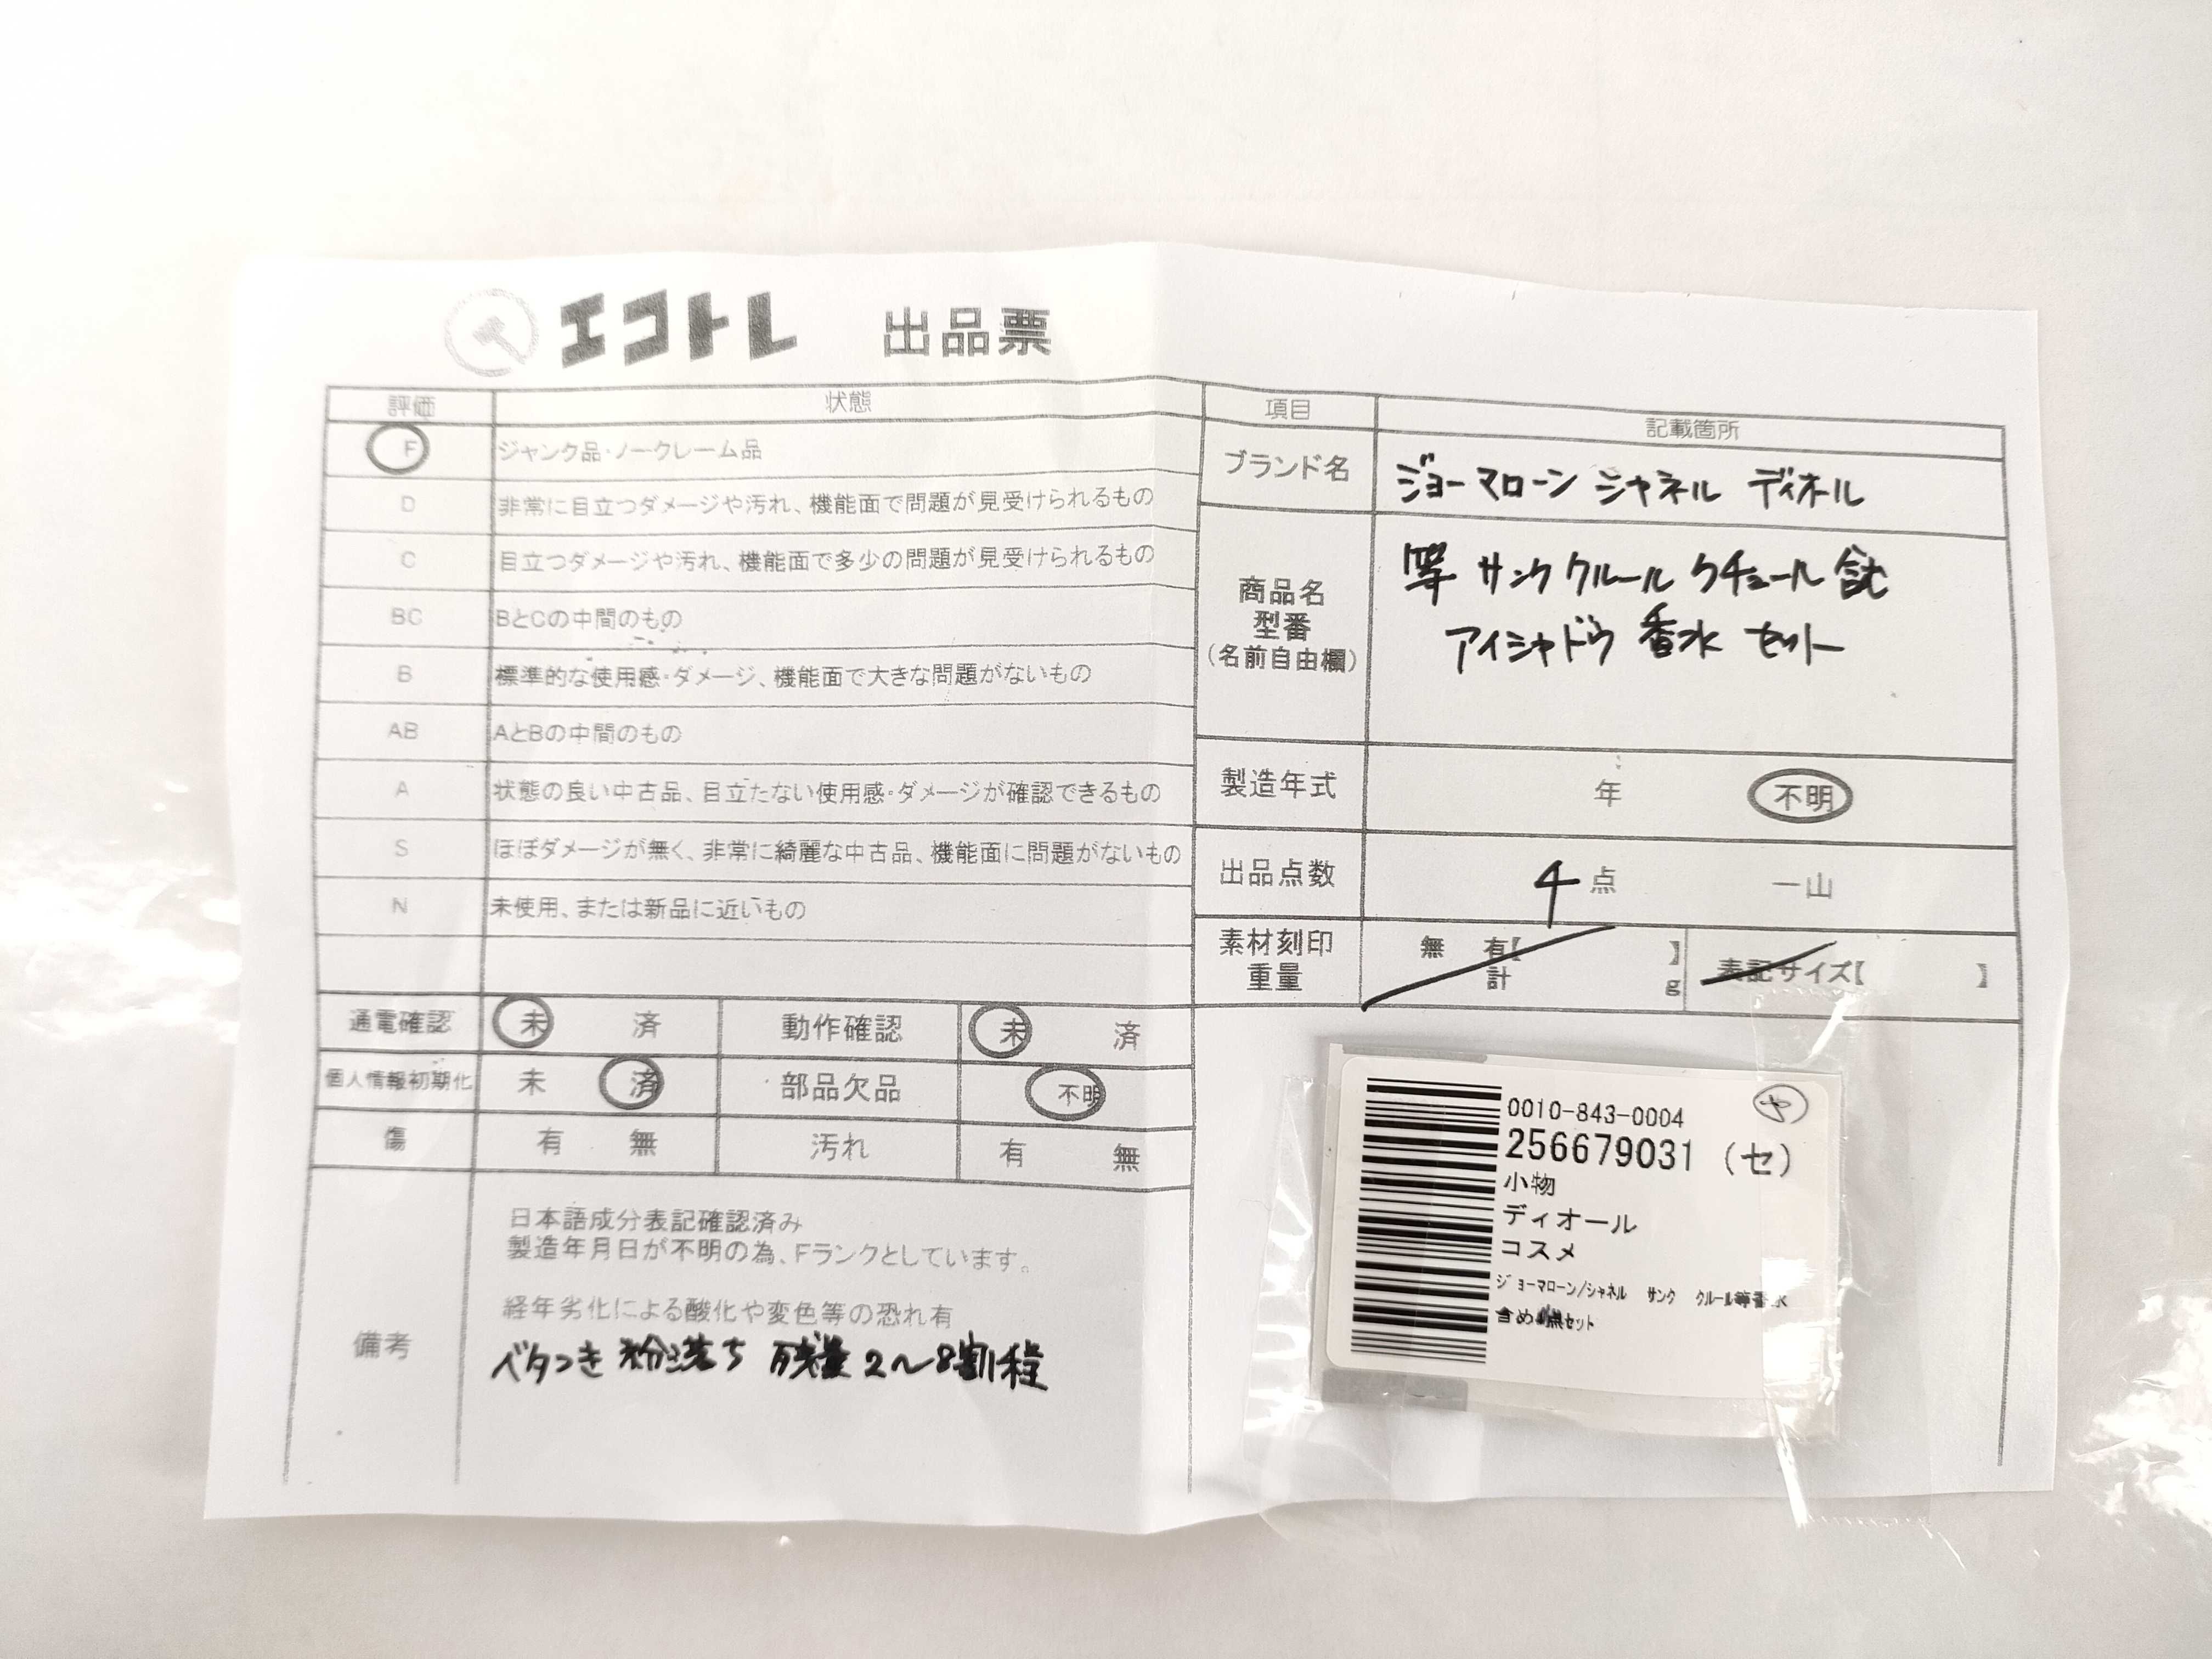 エコトレ 出品票
評価 状態
F ジャンク品・ノークレーム品
D 非常に目立つダメージや汚れ、機能面で問題が見受けられるもの
C 目立つダメージや汚れ、機能面で多少の問題が見受けられるもの
BC BとCの中間のもの
B 標準的な使用感・ダメージ、機能面で大きな問題がないもの
AB AとBの中間のもの
A 状態の良い中古品、目立たない使用感・ダメージが確認できるもの
S ほぼダメージが無く、非常に綺麗な中古品、機能面に問題がないもの
N 未使用、または新品に近いもの
通電確認 未 済 動作確認 未 済
個人情報初期化 未 済 部品欠品 不明
傷 有 無 汚れ 有 無
備考
日本語成分表記確認済み
製造年月日が不明の為、Fランクとしています。
経年劣化による酸化や変色等の恐れ有
ベタつき 粉落ち 残量 2～8割程
項目 記載箇所
ブランド名 ジョーマローン シャネル ディオール
商品名
型番
(名前自由欄)
等 サンク クルール クチュール 含む
アイシャドウ 香水 セット
製造年式 年 不明
出品点数 4点 一山
素材刻印 無 有【 】 表記サイズ【 】
重量 計 g
0010-843-0004
256679031 (セ)
小物
ディオール
コスメ
ジョーマローン/シャネル サンク クルール等香水
含め 点セット